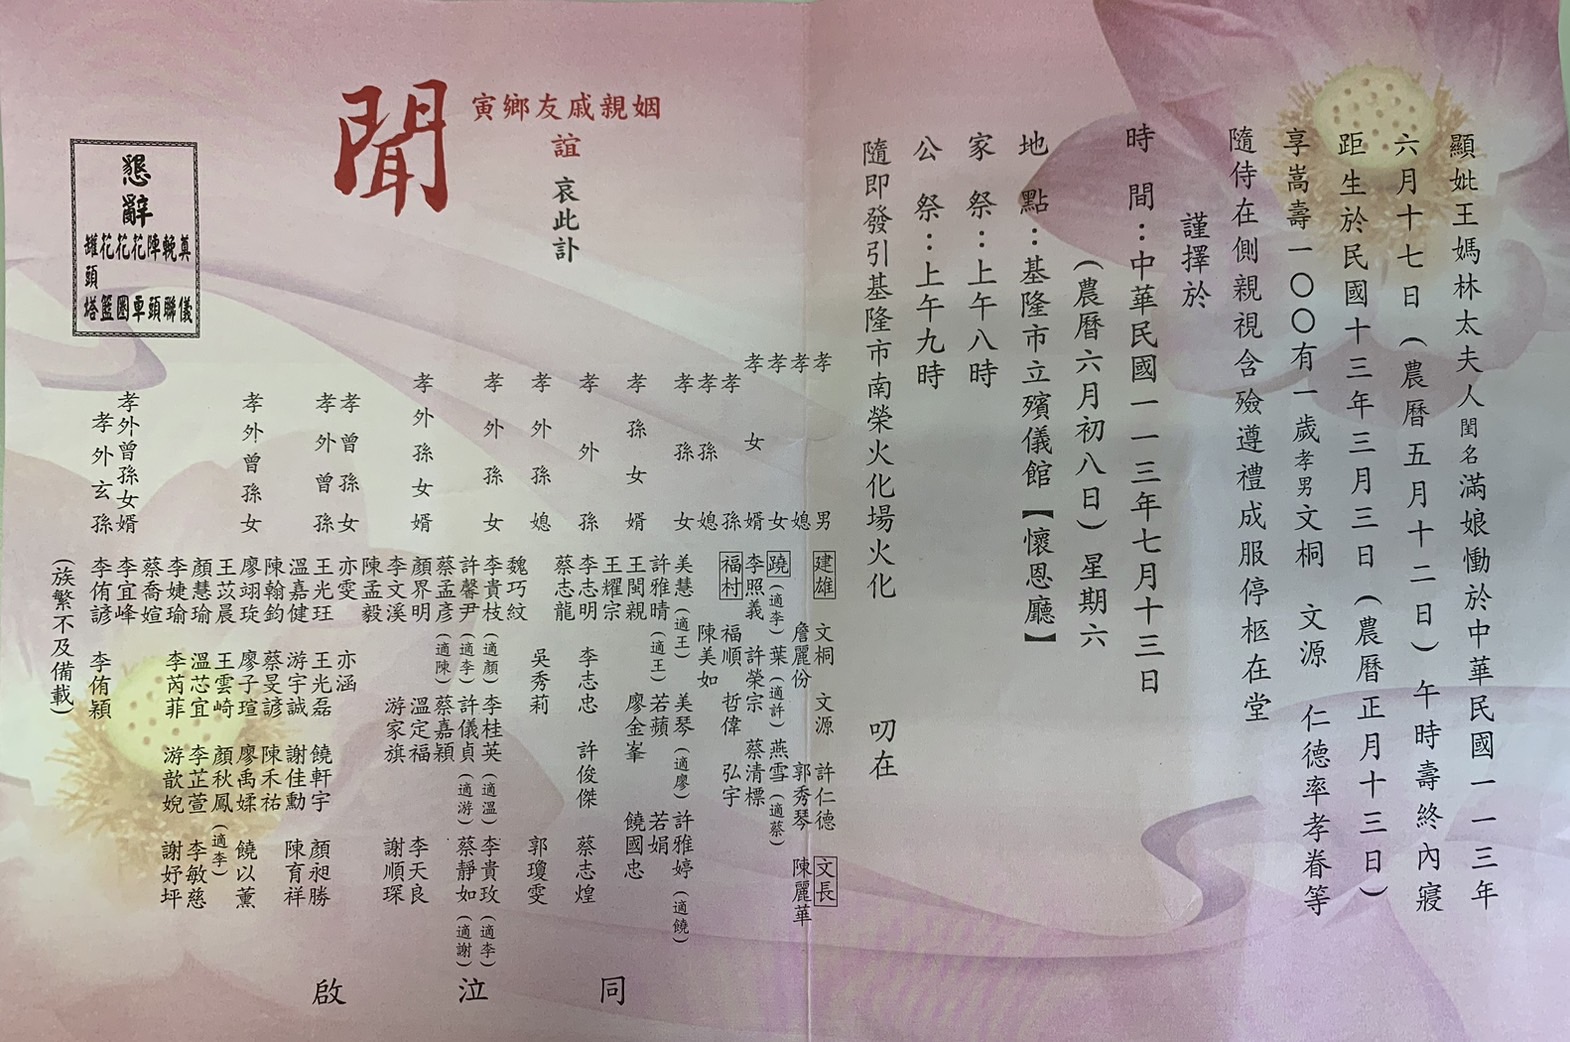 顯妣王媽林太夫人閨名滿娘慟於中華民國一一三年
六月十七日(農曆五月十二日)午時壽終內寢
距生於民國十三年三月三日(農曆正月十三日)
享嵩壽一〇〇有一歲孝男文桐 文源 仁德率孝眷等
隨侍在側親視含殮遵禮成服停柩在堂
謹擇於
時 間:中華民國一一三年七月十三日
(農曆六月初八日)星期六
地 點:基隆市立殯儀館【懷恩廳】
家 祭:上午八時
公 祭:上午九時
隨即發引基隆市南榮火化場火化 叨在
姻親戚友鄉寅
誼 哀此訃
聞
孝男 建雄 文桐 文源 許仁德 文長
孝媳 詹麗份 郭秀琴 陳麗華
孝女 蹺(適李) 葉(適許) 燕雪(適蔡)
孝女婿 李照義 許榮宗 蔡清標
孝孫 福村 福順 哲偉 弘宇
孝孫媳 陳美如
孝孫女 美慧(適王) 美琴(適廖) 許雅婷(適饒)
許雅晴(適王) 若蘋 若娟
王閔親 廖金峯 饒國忠
孝孫女婿 王耀宗
孝外孫 李志明 李志忠 許俊傑 蔡志煌
蔡志龍
孝外孫媳 魏巧紋 吳秀莉 郭瓊雯
孝外孫女 李貴枝(適顏) 李桂英(適溫) 李貴玫(適李)
許馨尹(適李) 許儀貞(適游) 蔡靜如(適謝)
蔡孟彥(適陳) 蔡嘉穎
孝外孫女婿 顏界明 溫定福 李天良
李文溪 游家旗 謝順琛
陳孟毅
孝曾孫女 亦雯 亦涵
孝外曾孫 王光玨 王光磊 饒軒宇 顏昶勝
溫嘉健 游宇誠 謝佳勳 陳育祥
陳翰鈞 蔡旻諺 陳禾祐
孝外曾孫女 廖翊琁 廖子瑄 廖禹媃 饒以薰
王苡晨 王雲崎 顏秋鳳(適李)
顏慧瑜 溫芯宜 李芷萱 李敏慈
李婕瑜 李芮菲 游歆婗 謝妤坪
蔡喬媗
孝外曾孫女婿 李宜峰
孝外玄孫 李侑諺 李侑穎
(族繁不及備載)
同 泣 啟
懇辭
奠儀
輓聯
陣頭
花車
花圈
花籃
罐頭塔